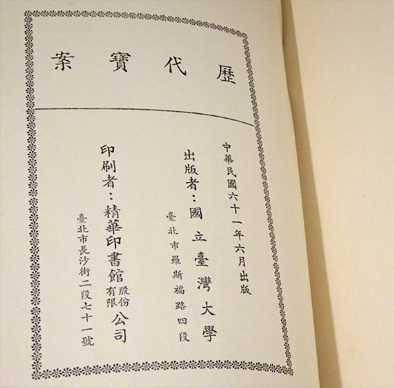 歷代寶案
中華民國六十一年六月出版
出版者：國立臺灣大學
臺北市羅斯福路四段
印刷者：精華印書館股份有限公司
臺北市長沙街二段七十一號